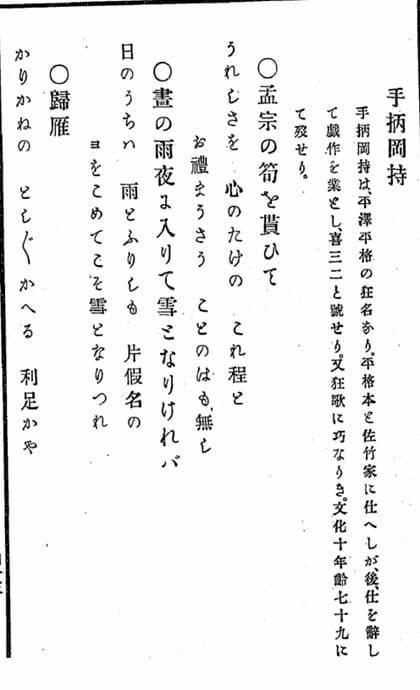 手柄岡持
手柄岡持は、平澤平格の狂名なり。平格本と佐竹家に仕へしが、後、仕を辭し
て戯作を業とし、喜三二と號せり。又狂歌に巧なりき。文化十年齢七十九に
て歿せり。
〇孟宗の筍を貰ひて
うれしさを 心のたけの これ程と
お禮まうさう ことのはも、無し
〇晝の雨夜に入りて雪となりけれバ
日のうちハ 雨とふりしも 片假名の
ヨをこめてこそ雪となりつれ
〇歸雁
かりかねの とし〴〵かへる 利足かや